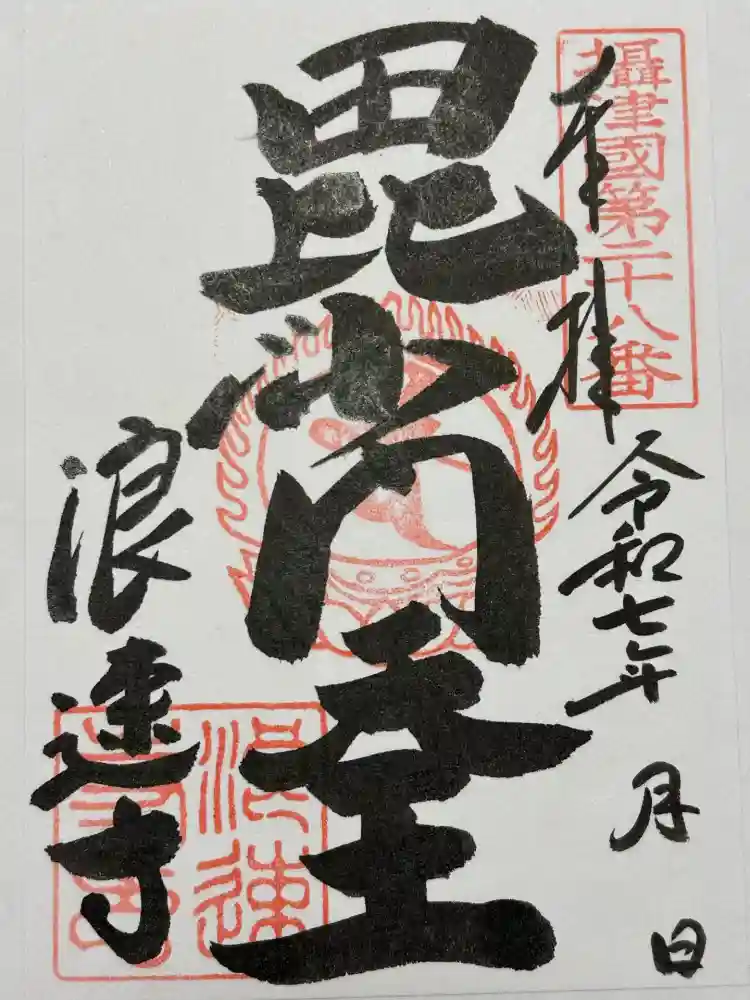 攝津國第二十八番
奉拝
令和七年 月 日
毘沙門天王
浪速寺
浪速寺